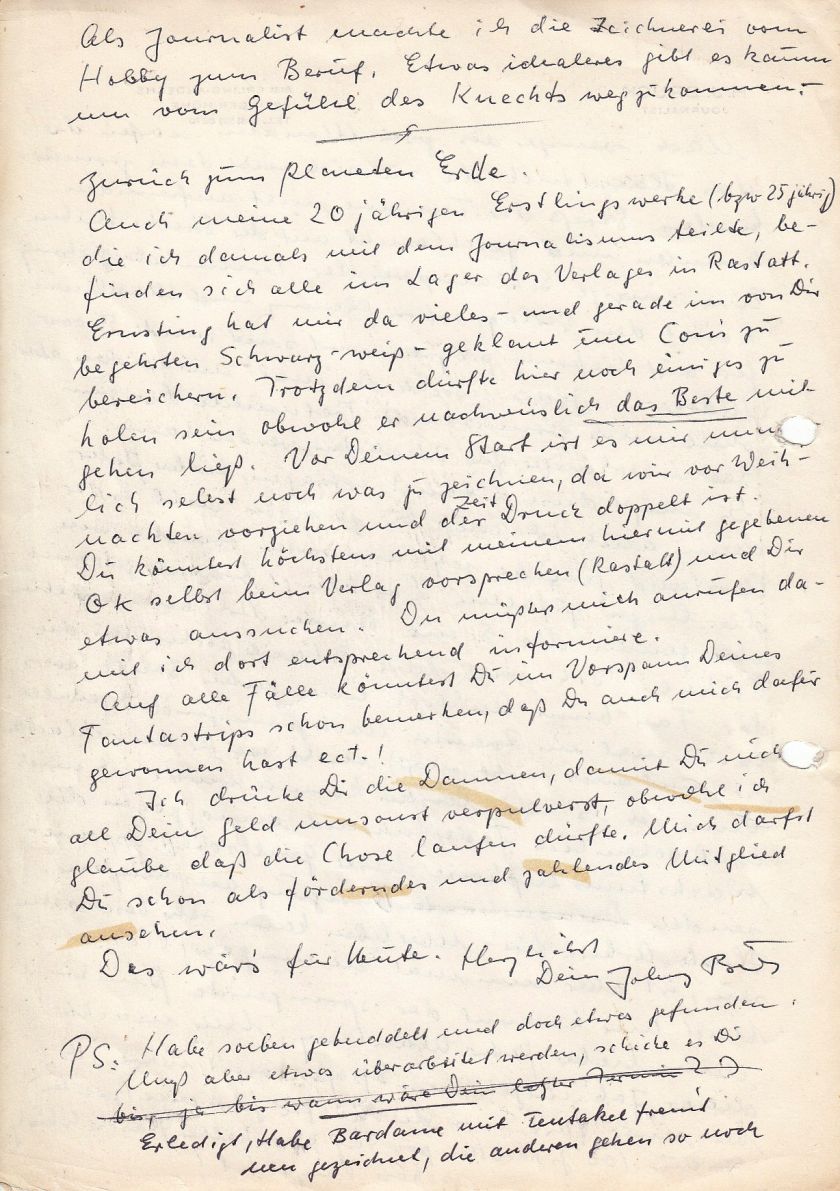 Als Journalist machte ich die Zeichnerei vom
Hobby zum Beruf. Etwas idealeres gibt es kaum
um vom Gefühl des Knechts wegzukommen.-
Zurück zum Planeten Erde.
Auch meine 20 jährigen Erstlingswerke (bzw 25 jährig)
die ich damals mit dem Journalismus teilte, be-
finden sich alle im Lager des Verlages in Rastatt.
Ernsting hat mir da vieles - und gerade im von Dir
begehrten Schwarz-weiß - geklaut um Conis zu
bereichern. Trotzdem dürfte hier noch einiges zu
holen sein obwohl er nachweislich das Beste mit
gehen ließ. Vor Deinem Start ist es mir unmög
lich selbst noch was zu zeichnen, da wir vor Weih-
nachten vorziehen und der Zeit Druck doppelt ist.
Du könntest höchstens mit meinem hiermit gegebenen
OK selbst beim Verlag vorsprechen (Rastatt) und Dir
etwas aussuchen. Du müsstest mich anrufen da-
mit ich dort entsprechend informiere.
Auf alle Fälle könntest Du im Vorspann Deines
Fantastrips schon bemerken, daß Du auch mich dafür
gewonnen hast ect.!
Ich drücke Dir die Daumen, damit Du nich
all Dein Geld umsonst verpulverst, obwohl ich
glaube daß die Chose laufen dürfte. Mich darfst
Du schon als förderndes und zahlendes Mitglied
ansehen.
Das wär's für Heute. Herzlichst
Dein Johnny
PS: Habe soeben gebuddelt und doch etwas gefunden.
Muß aber etwas überarbeitet werden, schicke es Dir
bis, ja bis wann wäre Dein letzter Termin??
Erledigt, Habe Bardame mit Tentakel fremd
neu gezeichnet, die anderen gehen so noch